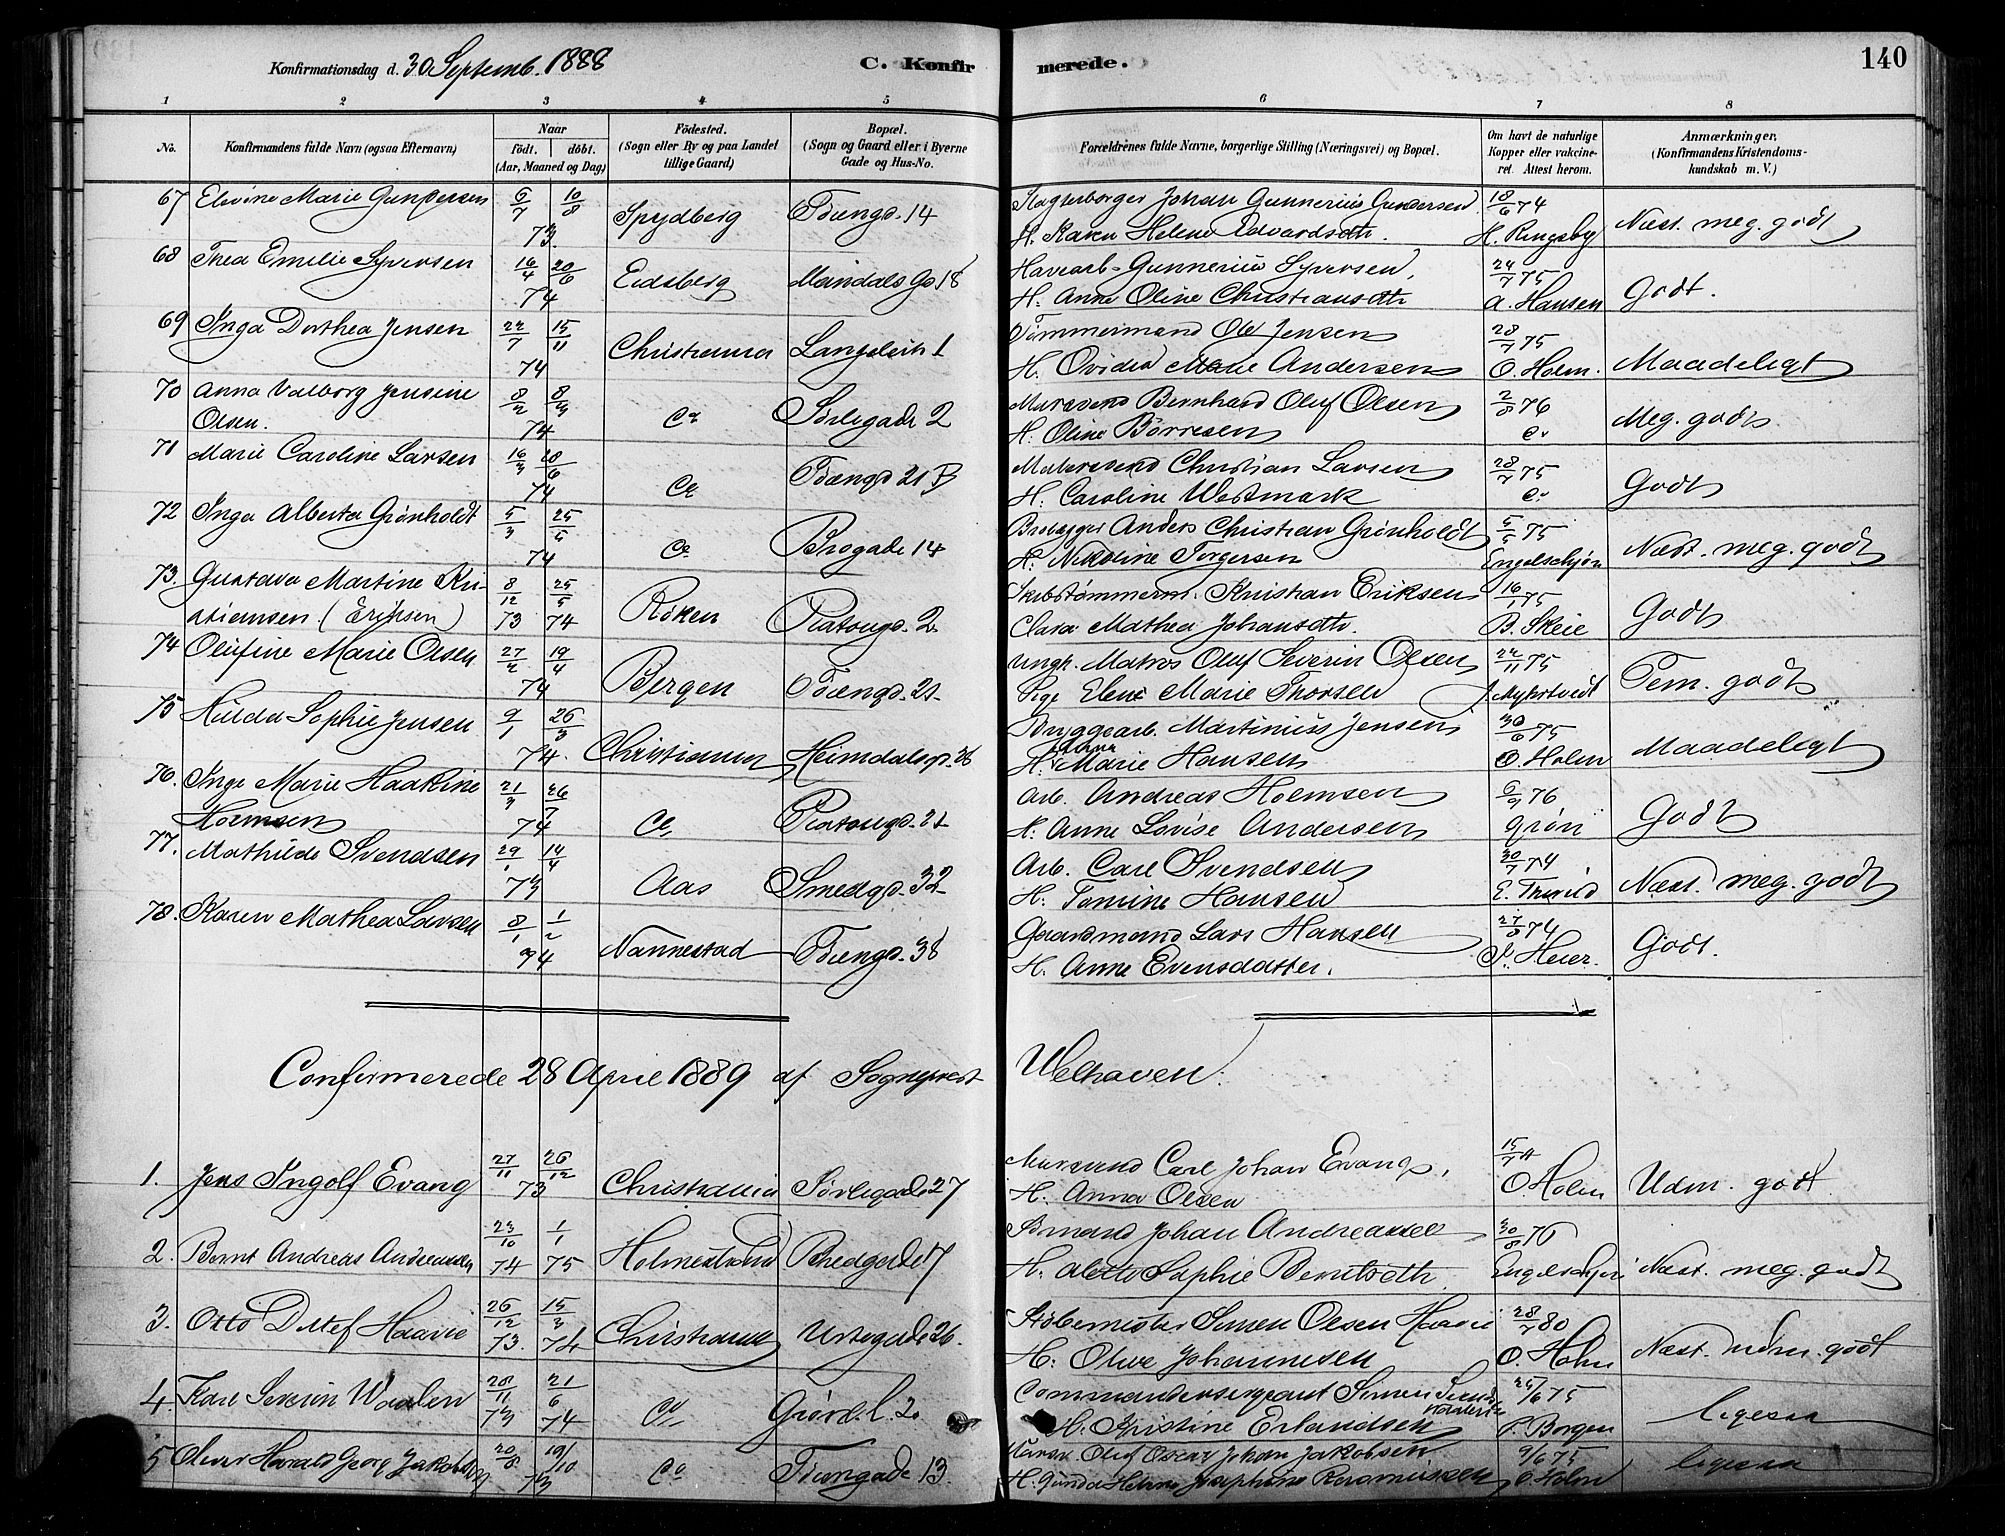 Konfirmationsdag d. 30 Septemb. 1888
C. Konfirmerede.
140
1 2 3 4 5 6 7 8
No.
Konfirmandens fulde Navn (ogsaa Efternavn)
Naar
Født. døbt.
(Aar, Maaned og Dag)
Fødested.
(Sogn eller By og paa Landet
tillige Gaard)
Bopæl.
(Sogn og Gaard eller i Byerne
Gade og Hus-No.
Forældrenes fulde Navne, borgerlige Stilling (Næringsvei) og Bopæl.
Om havt de naturlige
Kopper eller vakcine-
ret. Attest herom.
Anmærkninger,
(Konfirmandens Kristendoms-
kundskab m. V.)
67 Elevine Marie Gundersen 6/7 10/8 73. Spydberg Tøiengd. 14 Johan Gunnerius Gundersen 18/6 74
H. Karen Helene Edvardsdtr. H. Ringsby Næst. meg. godt
68 Thea Emilie Syversen 16/4 20/6 74 Eidsberg 18 Havearb. Gunnerius Syversen, 24/7 75
H. Anne Oline Christiansdtr A. Hansen Godt.
69 Inga Dorthea Jensen 22/7 15/11 74 Christiania Langeleik 1 Tømmermand Ole Jensen 28/7 75
H. Ovidia Marie Andersen O. Holm. Maadeligt
70 Anna Valborg Jensine 8/2 8/3 Murersvend Bernhard Oluf Olsen 2/8 76
Olsen. 74 Ca Sørligade 2 H. Oline Børresen Meg. godt
71 Marie Caroline Larsen 16/3 18/6 74 Ca Tøiengd 21 B Malersvend Christian Larsen 28/7 75
H. Caroline Westmark Godt
72 Inga Alberta Grønholdt 5/3 25/5 74 Ca Brogade 14 Anders Christian Grønholdt 5/5 75
H. Nikoline Torgersen Engelschjøn Næst. meg. godt
73. Gustava Martine Kri- 8/12 25/5 Skibstømmerm. Kristian Eriksen 16/1 75
stiansen (Eriksen) 73 74 Røken Platougd. 2 Clara Mathea Johansdtr. B. Skeie Godt
74 Olufine Marie Olsen 27/2 19/4 74 Bergen Tøiengd. 21 Ungk. Matros Oluf Severin Olsen 22/11 75
Pige Elene Marie Thorsen Tem. godt
75 Hilda Sophie Jensen 9/1 26/3 74. Christiania Heimdalsgd. 26 Bryggearb. Martinius Jensen 30/6 75
H. Marie Hansen O. Holm Maadeligt
76. Inge Marie Haakine 21/3 26/7 Arb. Andreas Holmsen 6/9 76
Holmsen 74 Ca Platougd. 21 H. Anne Lovise Andersen Grøn Godt
77. Mathilde Svendsen 29/1 14/4 73 Aas Smedgd. 32 Arb. Carl Svendsen 30/7 74
H. Tomine Hansen Næst. meg. godt
78. Karen Mathea Larsen 8/1 1/2 94 Nannestad Tøiengd. 38 Gaardmand Lars Hansen 27/8 74
H. Anne Evensdatter. Heier. Godt.
Confirmerede 28 April 1889 af Sogneprest Welhaven.
1. Jens Ingolf Evang 27/11 26/12 73 Christiania Sørligade 27 Mursvend Carl Johan Evang, 15/7 74
H. Anna Olsen O. Holm Udm. godt
2. Bernt Andreas Andreassen 23/10 1/1 74 75 Holmestrand Bredgade 17 Sømand Johan Andreassen 30/8 76
H. Sophie Berntsdtr. Engelschjøn Næst. meg. godt
3. Otto Ditlef Haavie 26/12 15/3 73. 74 Christiania Urtegade 26. Støbemester Simen Olsen Haavie 28/7 80
H. Olive Johannesen O. Holm Næst. udm. godt
4. Karl Severin Waalen 28/11 21/6 73 74 Ca Grønl. l. 2. Commandersergeant Simen 25/6 75
H. Kristine Erlandsen Borgen ligesaa
5 Oliver Harald Georg Jakobsen 20/8 19/10 73 Ca Tøiengade 13 Oluf Oscar Johan Jakobsen 9/6 75
H. Gunda Helene Josephine Rasmussen O. Holm ligesaa